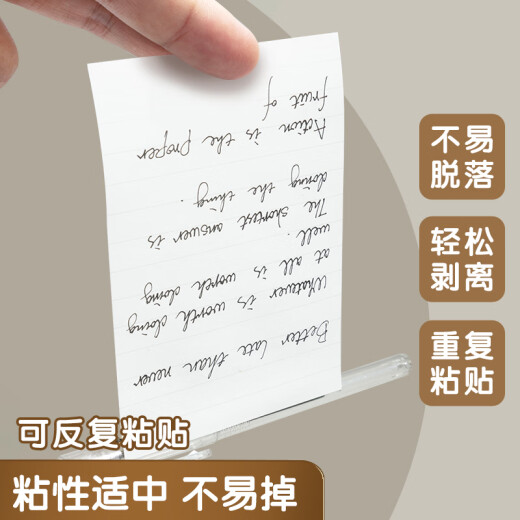 Better late than never
Whatever is worth doing
at all is worth doing
well.
The shortest answer is
doing the thing.
Action is the proper
fruit of
不易
脱落
轻松
剥离
重复
粘贴
可反复粘贴
粘性适中 不易掉